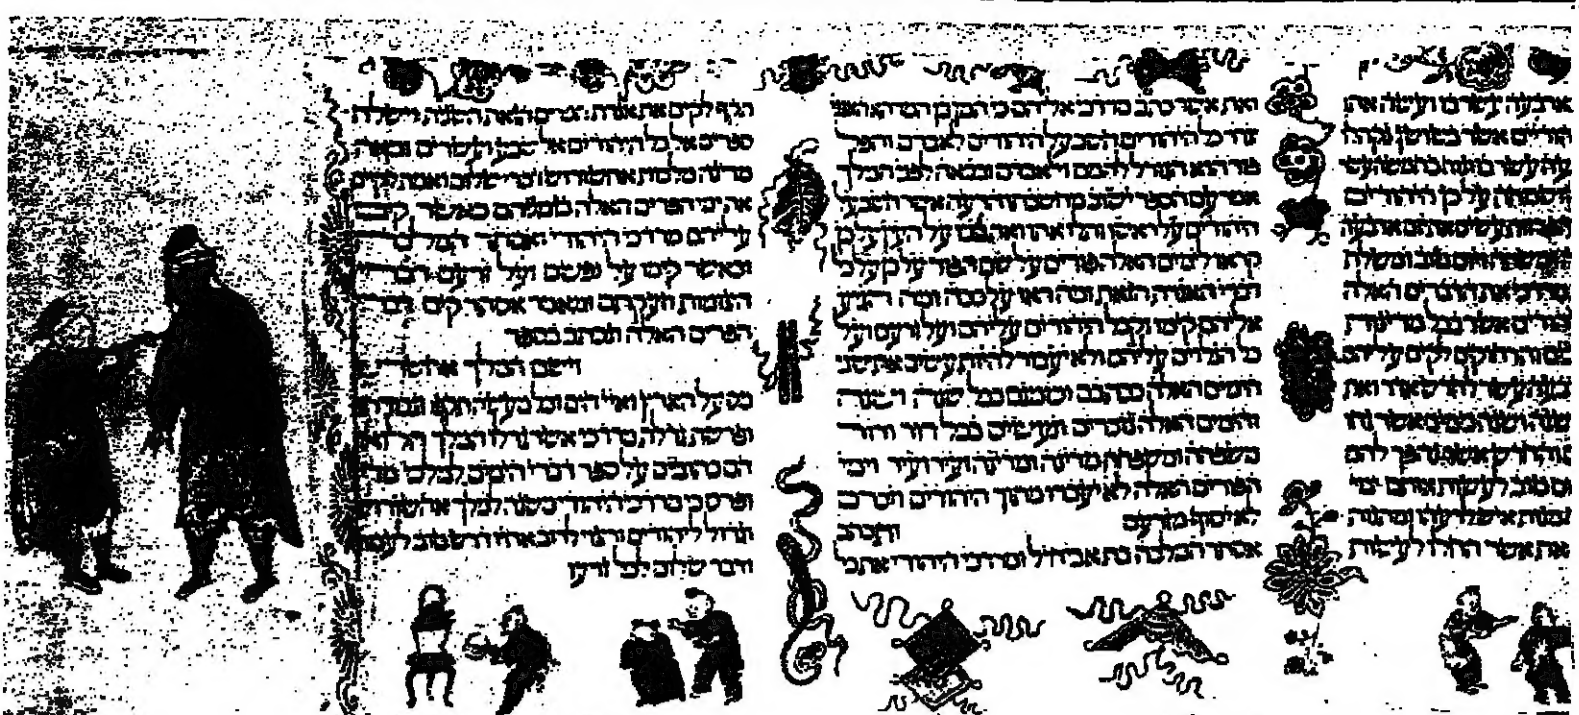 ארבעה עשר בו ועשה אתו
הודיים אשר בשושן נקהלו
עה עשר בו ונוח בחמשה עשר
ושמחה על כן היהודים
הפרזות עשים את יום ארבעה
ומשתה ויום טוב ומשלח
מרדכי את הדברים האלה
הודים אשר בכל מדינות
ים והרחוקים לקים עליהם
בעה עשר לחדש אדר ואת
שנה ושנה כימים אשר נחו
והחדש אשר נהפך להם
ום טוב לעשות אותם ימי
מנות איש לרעהו ומתנות
את אשר החלו לעשות
ואת אשר כתב מרדכי אליהם כי המן בן המדתא האגגי
צרר כל היהודים חשב על היהודים לאבדם והפל
פור הוא הגורל להמם ולאבדם ובבאה לפני המלך
אמר עם הספר ישוב מחשבתו הרעה אשר חשב על
היהודים על ראשו ותלו אתו ואת בניו על העץ על כן
קראו לימים האלה פורים על שם הפור על כן על כל
דברי האגרת הזאת ומה ראו על ככה ומה הגיע
אליהם קימו וקבל היהודים עליהם ועל זרעם ועל
כל הנלוים עליהם ולא יעבור להיות עשים את שני
הימים האלה ככתבם וכזמנם בכל שנה ושנה
והימים האלה נזכרים ונעשים בכל דור ודור
משפחה ומשפחה מדינה ומדינה ועיר ועיר וימי
הפורים האלה לא יעברו מתוך היהודים וזכרם
לא יסוף מזרעם ותכתב
אסתר המלכה בת אביחיל ומרדכי היהודי את כל
תקף לקים את אגרת הפרים הזאת השנית וישלח
ספרים אל כל היהודים אל שבע ועשרים ומאה
מדינה מלכות אחשורוש דברי שלום ואמת לקים
את ימי הפרים האלה בזמניהם כאשר קים
עליהם מרדכי היהודי ואסתר המלכה
וכאשר קימו על נפשם ועל זרעם דברי
הצומות וזעקתם ומאמר אסתר קים דברי
הפרים האלה ונכתב בספר
וישם המלך אחשורש
מס על הארץ ואיי הים וכל מעשה תקפו וגבורתו
ופרשת גדלת מרדכי אשר גדלו המלך הלוא
הם כתובים על ספר דברי הימים למלכי מדי
ופרס כי מרדכי היהודי משנה למלך אחשורוש
וגדול ליהודים ורצוי לרב אחיו דרש טוב לעמו
ודבר שלום לכל זרעו